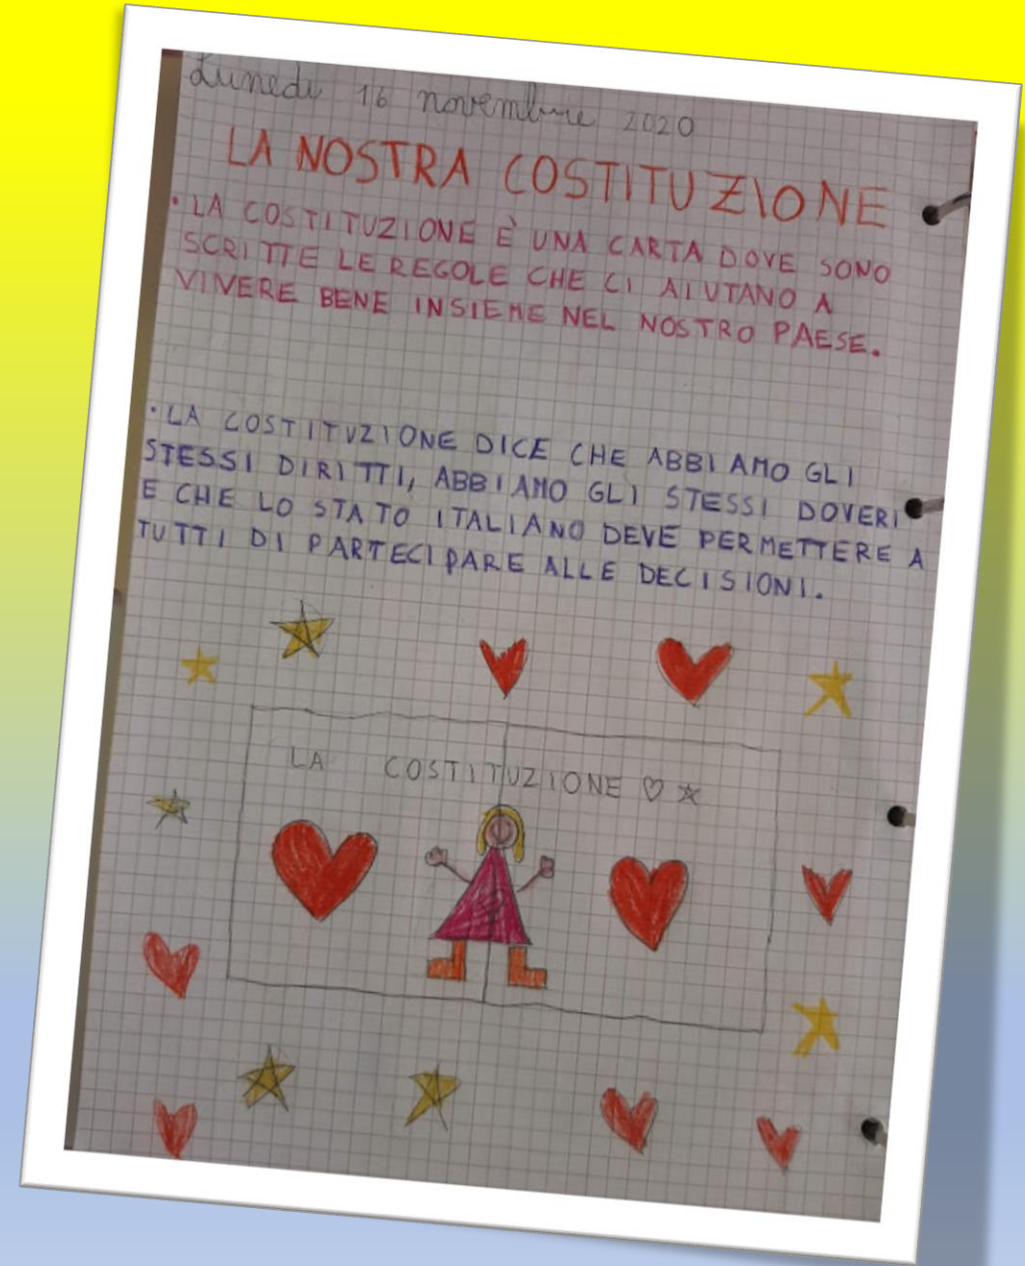 Lunedì 16 novembre 2020
LA NOSTRA COSTITUZIONE
• LA COSTITUZIONE È UNA CARTA DOVE SONO
SCRITTE LE REGOLE CHE CI AIUTANO A
VIVERE BENE INSIEME NEL NOSTRO PAESE.
• LA COSTITUZIONE DICE CHE ABBIAMO GLI
STESSI DIRITTI, ABBIAMO GLI STESSI DOVERI
E CHE LO STATO ITALIANO DEVE PERMETTERE A
TUTTI DI PARTECIPARE ALLE DECISIONI.
LA COSTITUZIONE ♡ ☆